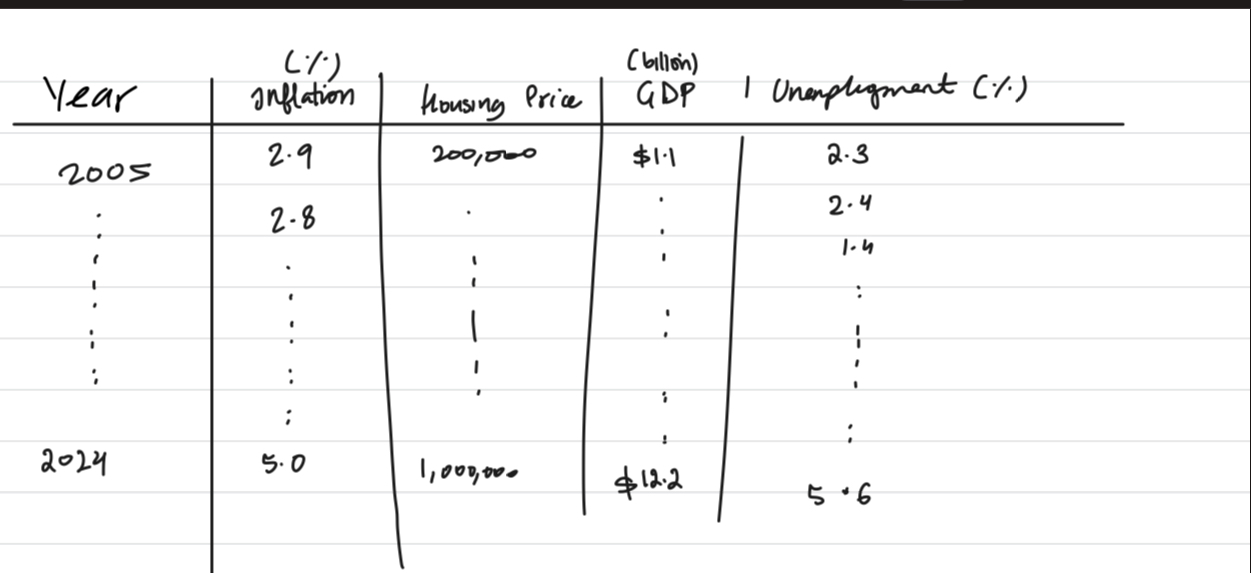 (%) (billion)
Year Inflation Housing Price GDP Unemployment (%)
2005 2.9 200,000 $1.1 2.3
2.8 2.4
1.4
2024 5.0 1,000,000 $12.2 5.6